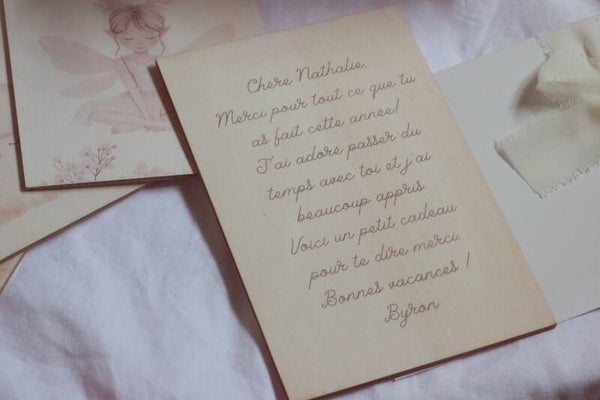 Chère Nathalie.
Merci pour tout ce que tu
as fait cette année!
J'ai adoré passer du
temps avec toi et j'ai
beaucoup appris.
Voici un petit cadeau
pour te dire merci.
Bonnes vacances !
Byron